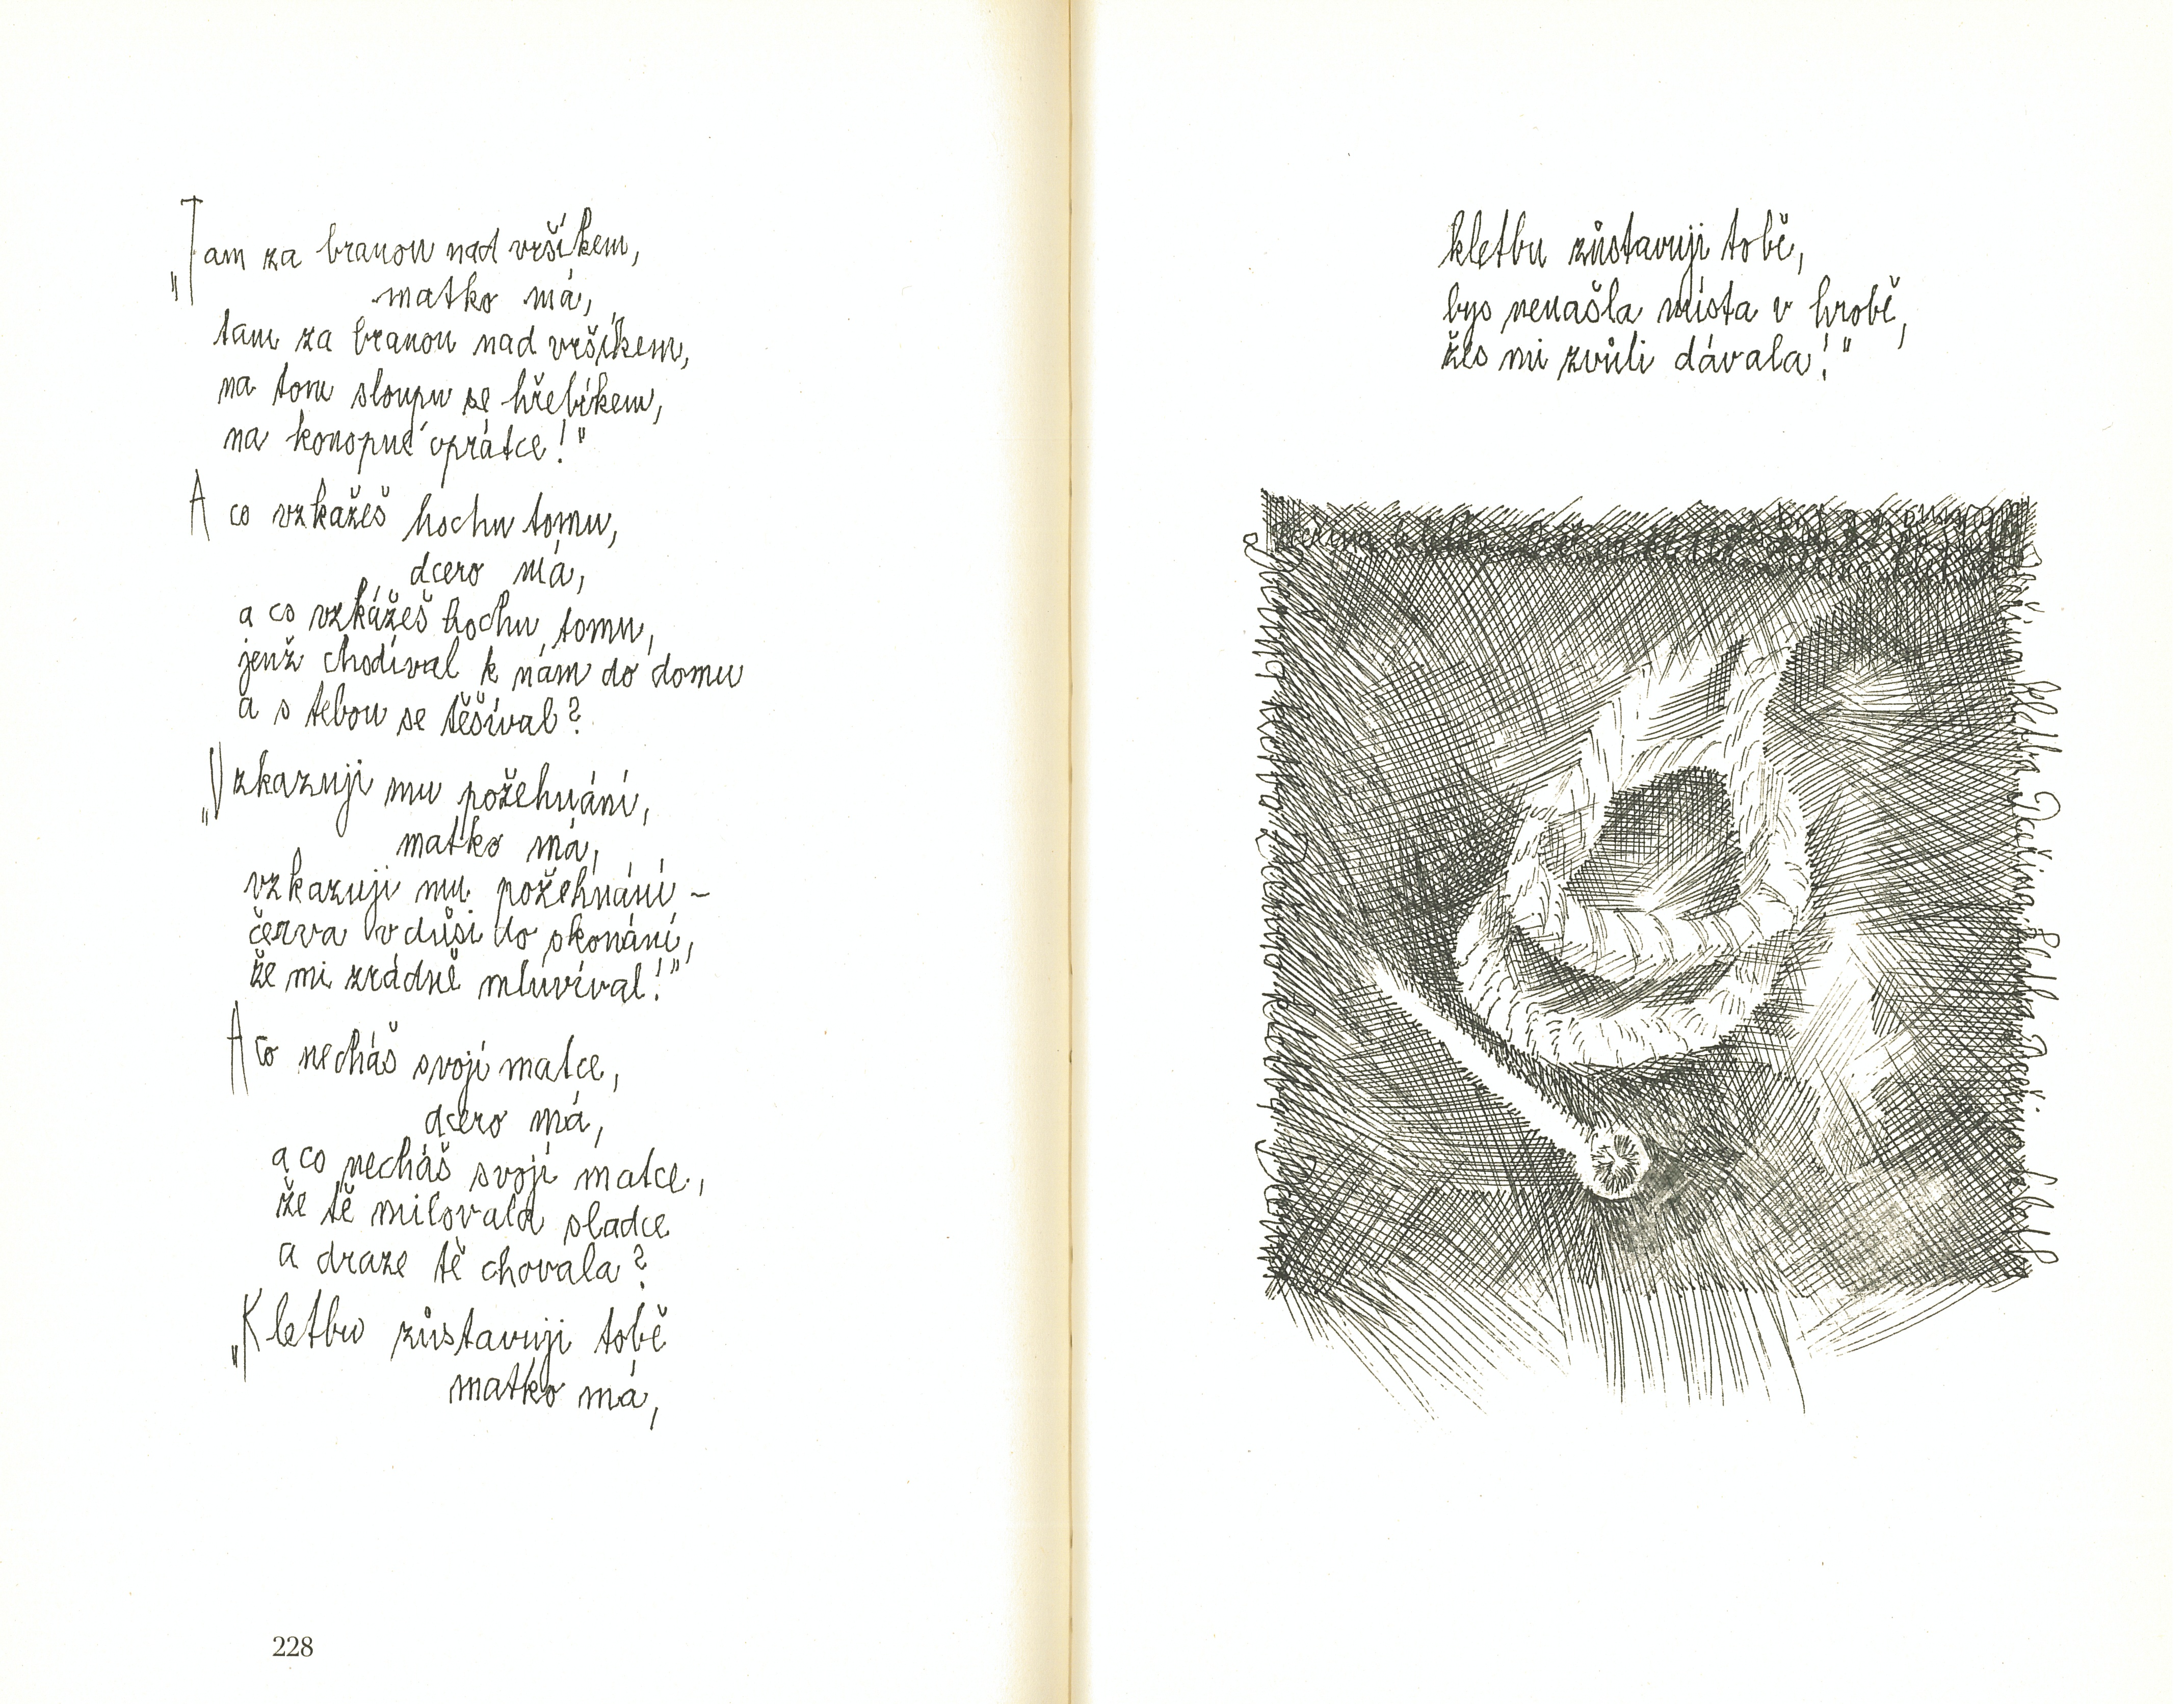 „Tam za branou nad vršíkem,
matko má,
tam za branou nad vršíkem,
na tom sloupu se hřebíkem,
na konopné oprátce!"
A co vzkážeš hochu tomu,
dcero má,
a co vzkážeš hochu tomu,
jenž chodíval k nám do domu
a s tebou se těšíval?
„Vzkazuji mu požehnání,
matko má,
vzkazuji mu požehnání –
červa v duši do skonání,
že mi zrádně mluvíval!"
A co necháš svojí matce,
dcero má,
a co necháš svojí matce,
že tě milovala sladce
a draze tě chovala?
„Kletbu zůstavuji tobě
matko má,
228
kletbu zůstavuji tobě,
bys nenašla místa v hrobě,
žes mi zvůli dávala!"